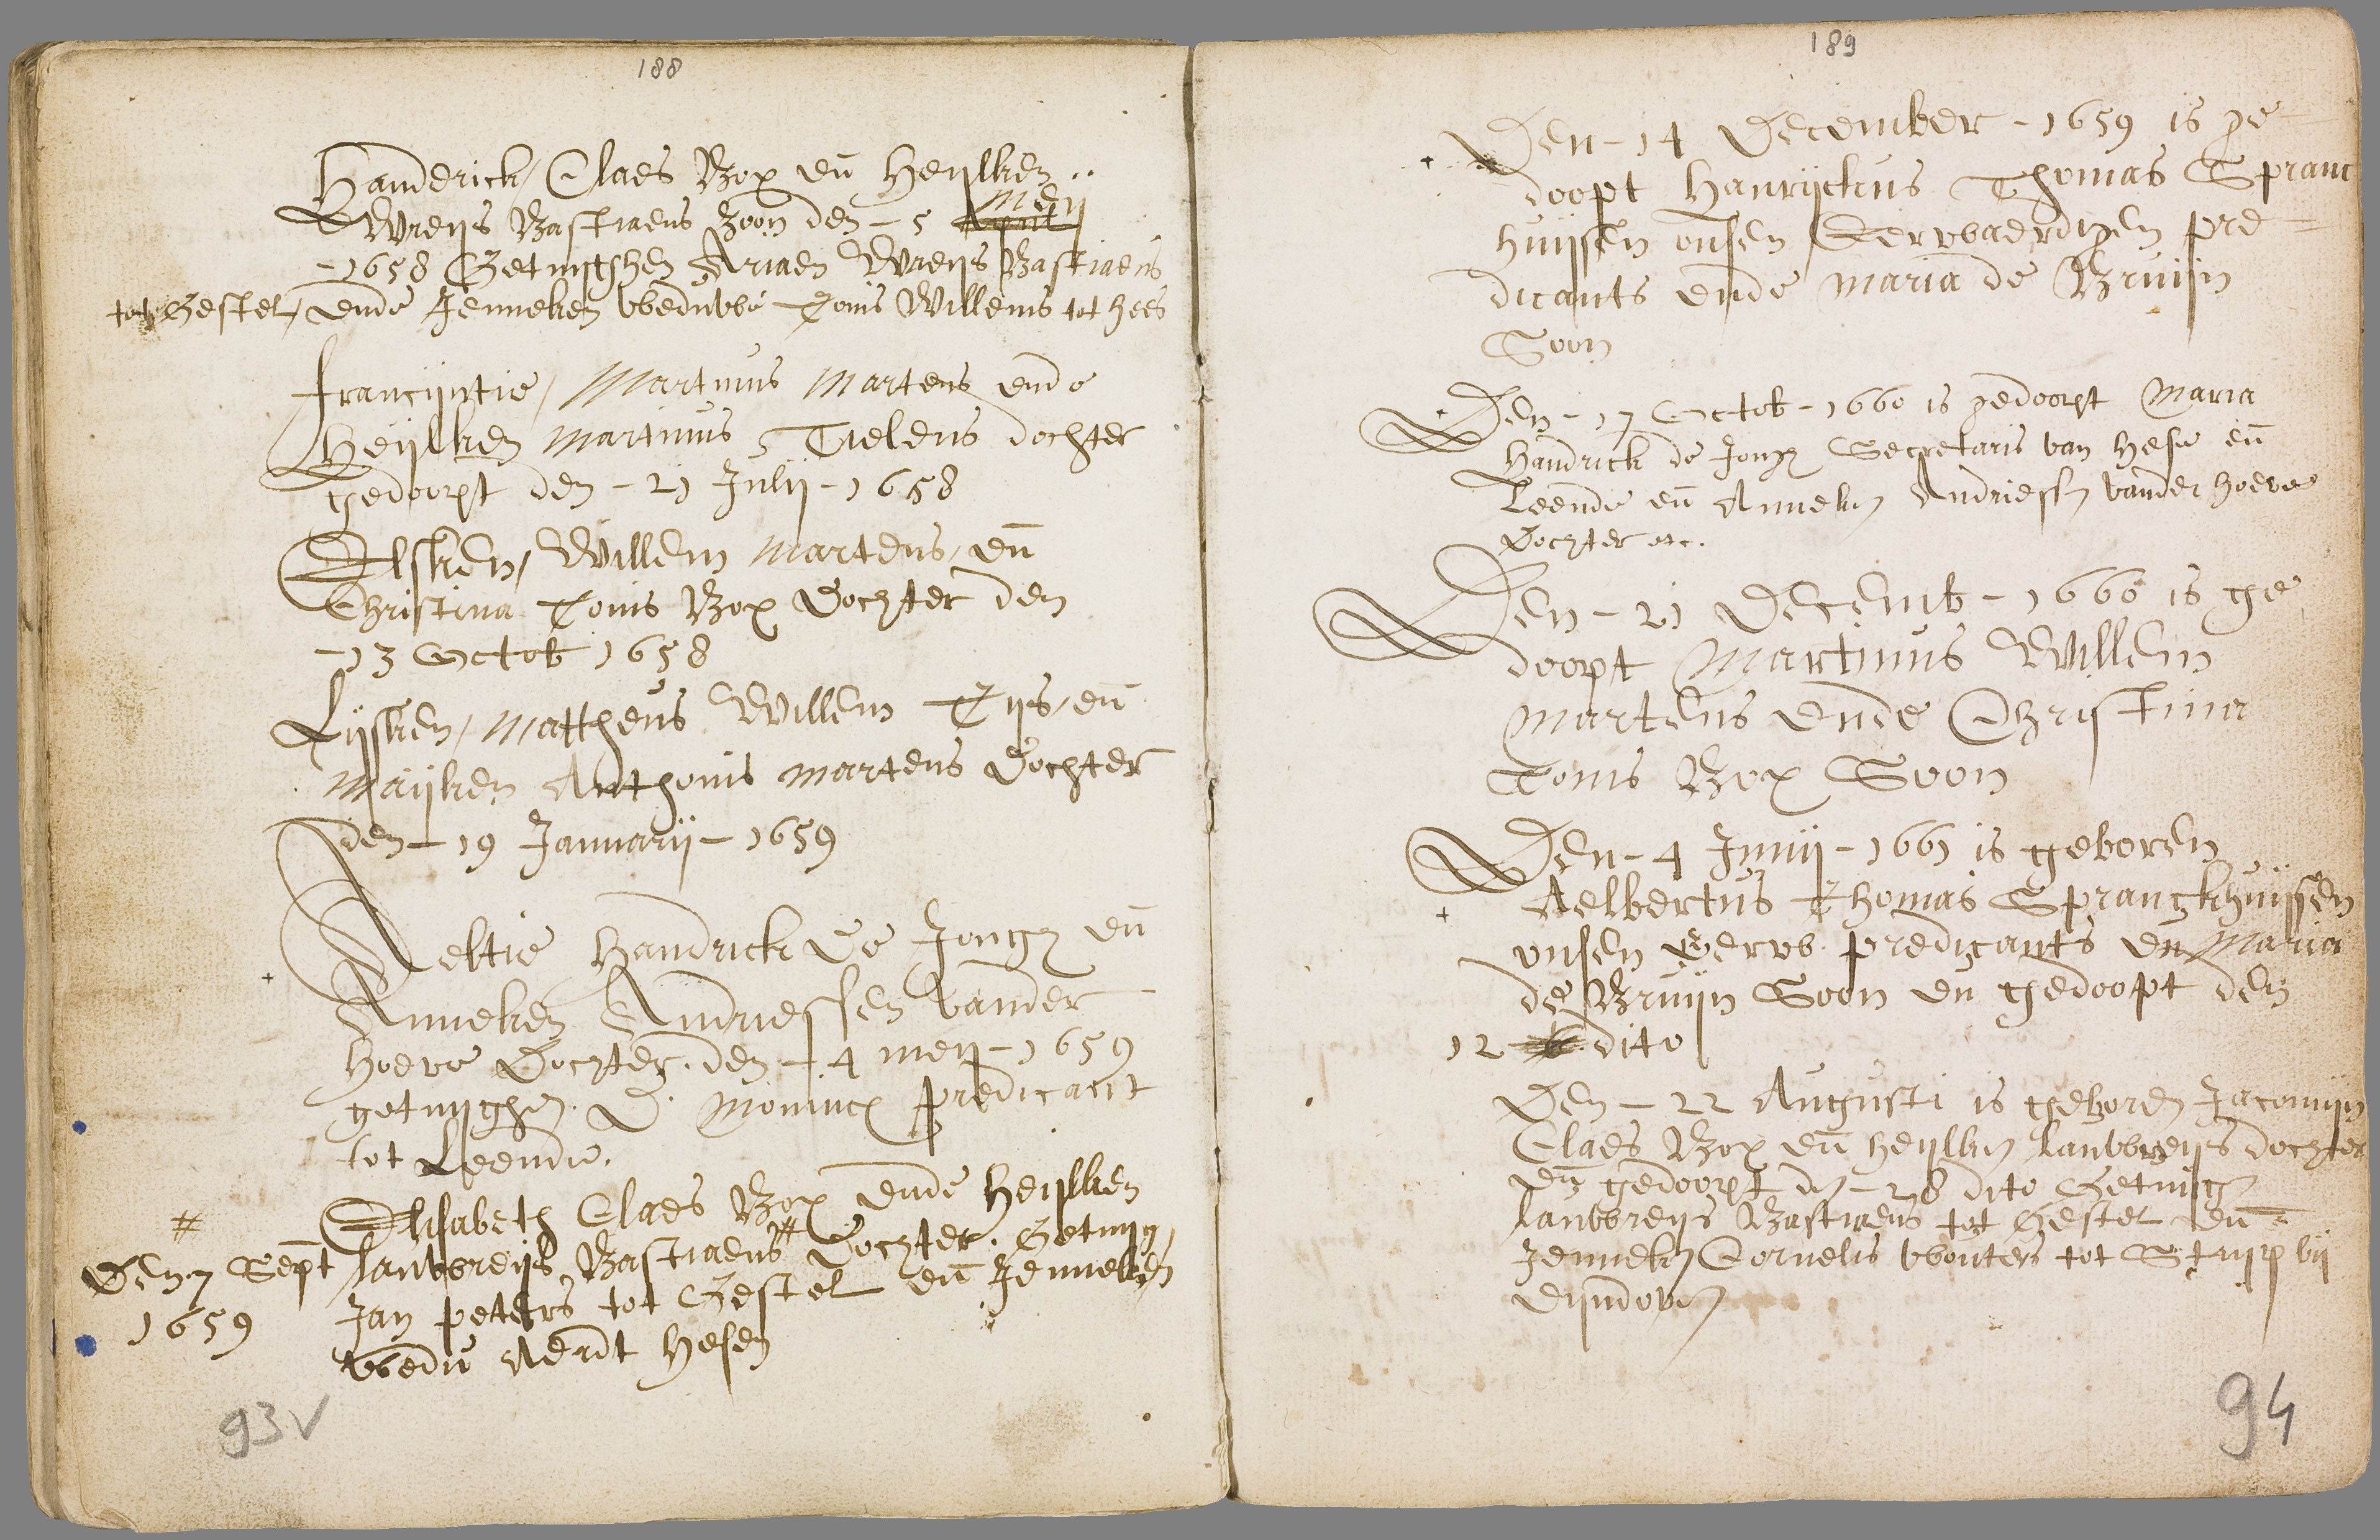 188
Handerick / Claes Box en̄ Heijlken
Wreijs Bastiaens zoon den - 5 Meij
- 1658 Getuijghen Ariaen Wreijs Bastiaens
tot Gestel / ende Jenneken weduwe Tonis Willems tot hees
francijntie / Martinus Martens ende
Heijlken Martinus Tielens dochter
gedoopt den - 21 Julij - 1658
Elsken / Willem Martens / en̄
Christina Tonis Box Dochter den
- 13 Octob 1658
Lijsken / Mattheus Willem Tijs / en̄
Maijken Anthonis Martens Dochter
den - 19 Januarij - 1659
Aeltie Handrick de Jongh en̄
+
Anneken Andriessen vander
Hoeve Dochter. den - 4 meij - 1659
getuijghen. D. Moninx predicant
tot Leende.
Elisabeth Claes Box ende Heijlken
#
Den 7 Sept lauwreijs Bastiaens # Dochter. Getuijg
1659 Jan peters tot Gestel en̄ Jenneken
wedu Aerdt Hesen
93v
189
Den - 14 December - 1659 is ge-
+
doopt Hanrijckus Thomas Spranc
huijsen onsen Eerwaerdigen pre-
dicants ende Maria de Bruijn
Soon
Den - 17 Octob - 1660 is gedoopt Maria
Handrick de Jongh Secretaris van Hese en̄
Leende en̄ Anneken Andriessen vander hoeve
Dochter etc.
Den - 21 Decemb - 1660 is ge
doopt Martinus Willem
Martens ende Christina
Tonis Box Soon
Den - 4 Junij - 1661 is geboren
+ Aelbertus Thomas Spranckhuijsen
onsen Eerw. predicants en Maria
de Bruijn Soon en gedoopt den
12 dito
Den - 22 Augusti is geboren Jacomijn
Claes Box en̄ Heijlken lauwreijs dochter
en̄ gedoopt den - 28 dito Getuijgen
lauwreijs Bastiaens tot Gestel en̄
Jenneken Cornelis wouters tot Strijp bij
Eijndoven
94